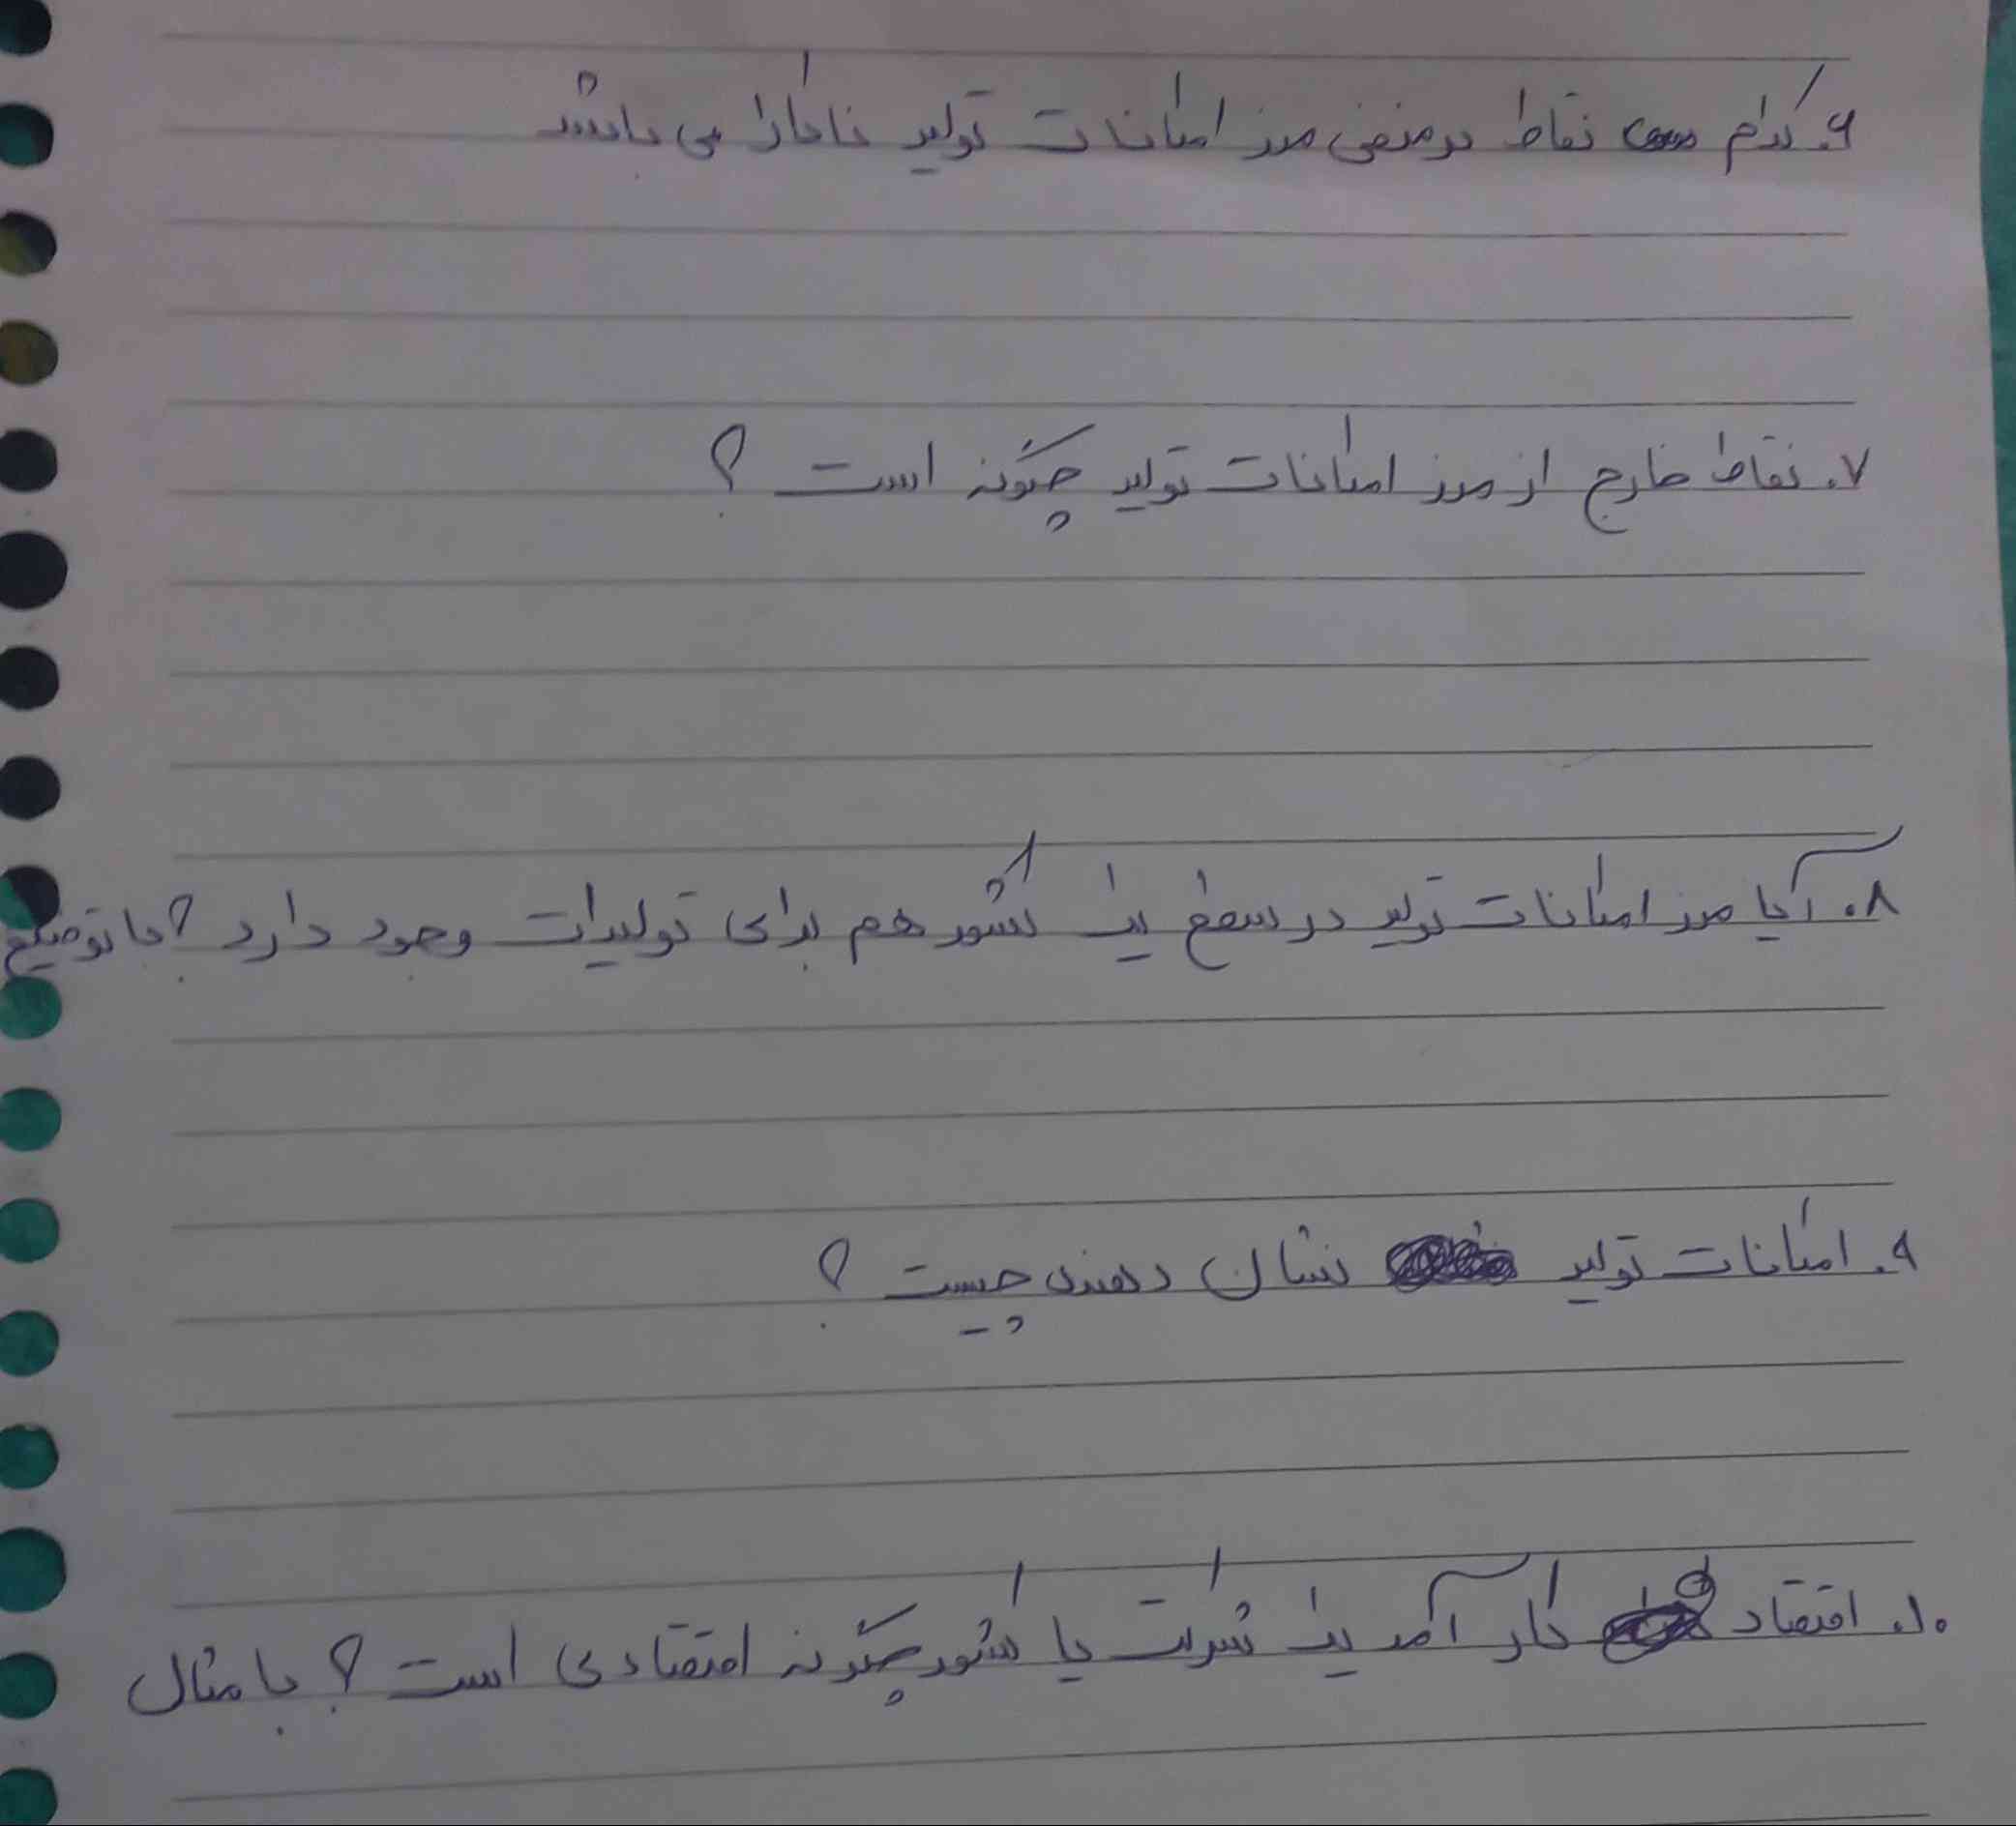 ۶. کدام نقاط در منحنی مرز امکانات تولید ناکارا می باشد
۷. نقاط خارج از مرز امکانات تولید چگونه است ؟
۸. آیا مرز امکانات تولید در سطح یک کشور هم برای تولیدات وجود دارد ؟ با توضیح
۹. امکانات تولید نشان دهنده چیست ؟
۱۰. اقتصاد کار آمد یک شرکت یا کشور چگونه اقتصادی است ؟ با مثال